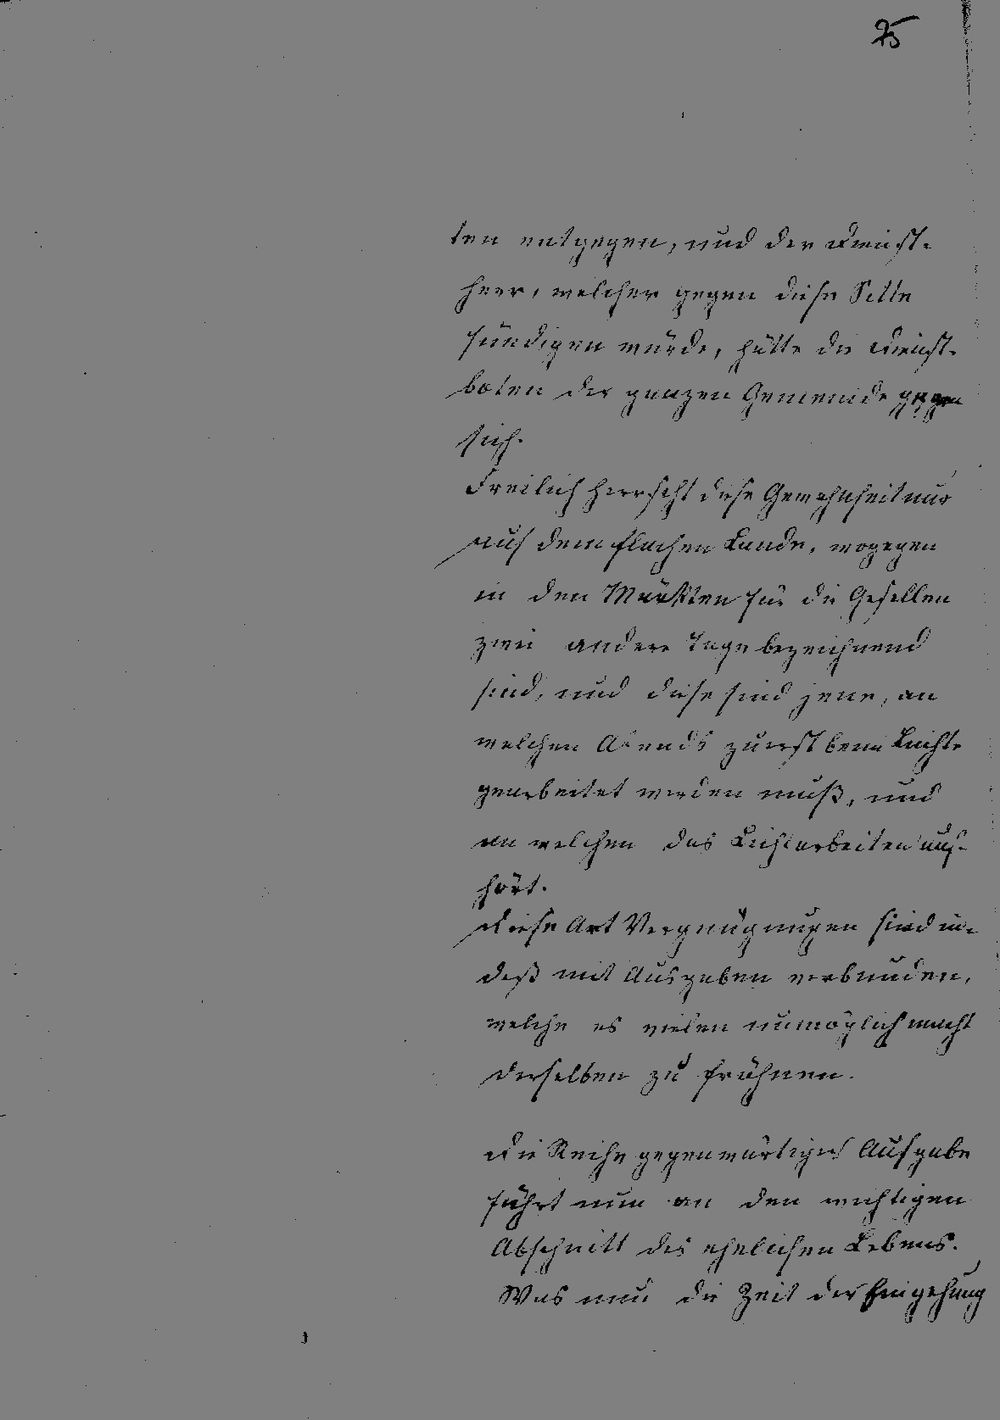 25
ten entgegen, und der Dienst-
herr, welcher gegen diese Sitte
sündigen würde, hätte die Dienst-
boten der ganzen Gemeinde gegen
sich.
Freilich herrscht diese Gewohnheit nur
auf dem flachen Lande, wogegen
in den Märkten für die Gesellen
zwei andere Tage bezeichnend
sind, und diese sind jene, an
welchen Abends zuerst beim Lichte
gearbeitet werden muß, und
an welchen das Lichtarbeiten auf-
hört.
Diese Art Vergnügungen sind in-
deß mit Ausgaben verbunden,
welche es vielen unmöglich macht
derselben zu fröhnen.
Die Reihe gegenwärtiger Aufgabe
führt nun an den wichtigen
Abschnitt des ehelichen Lebens.
Was nun die Zeit der Eingehung